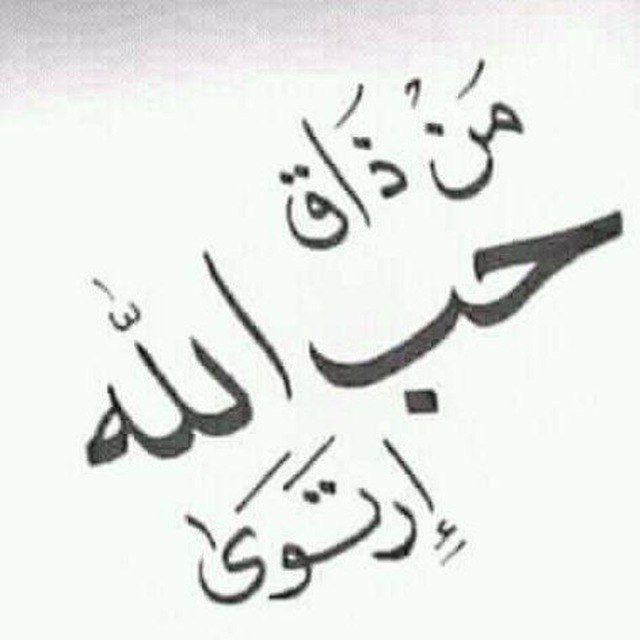 مَنْ ذَاق
حب اللّٰه
إرتَوَى